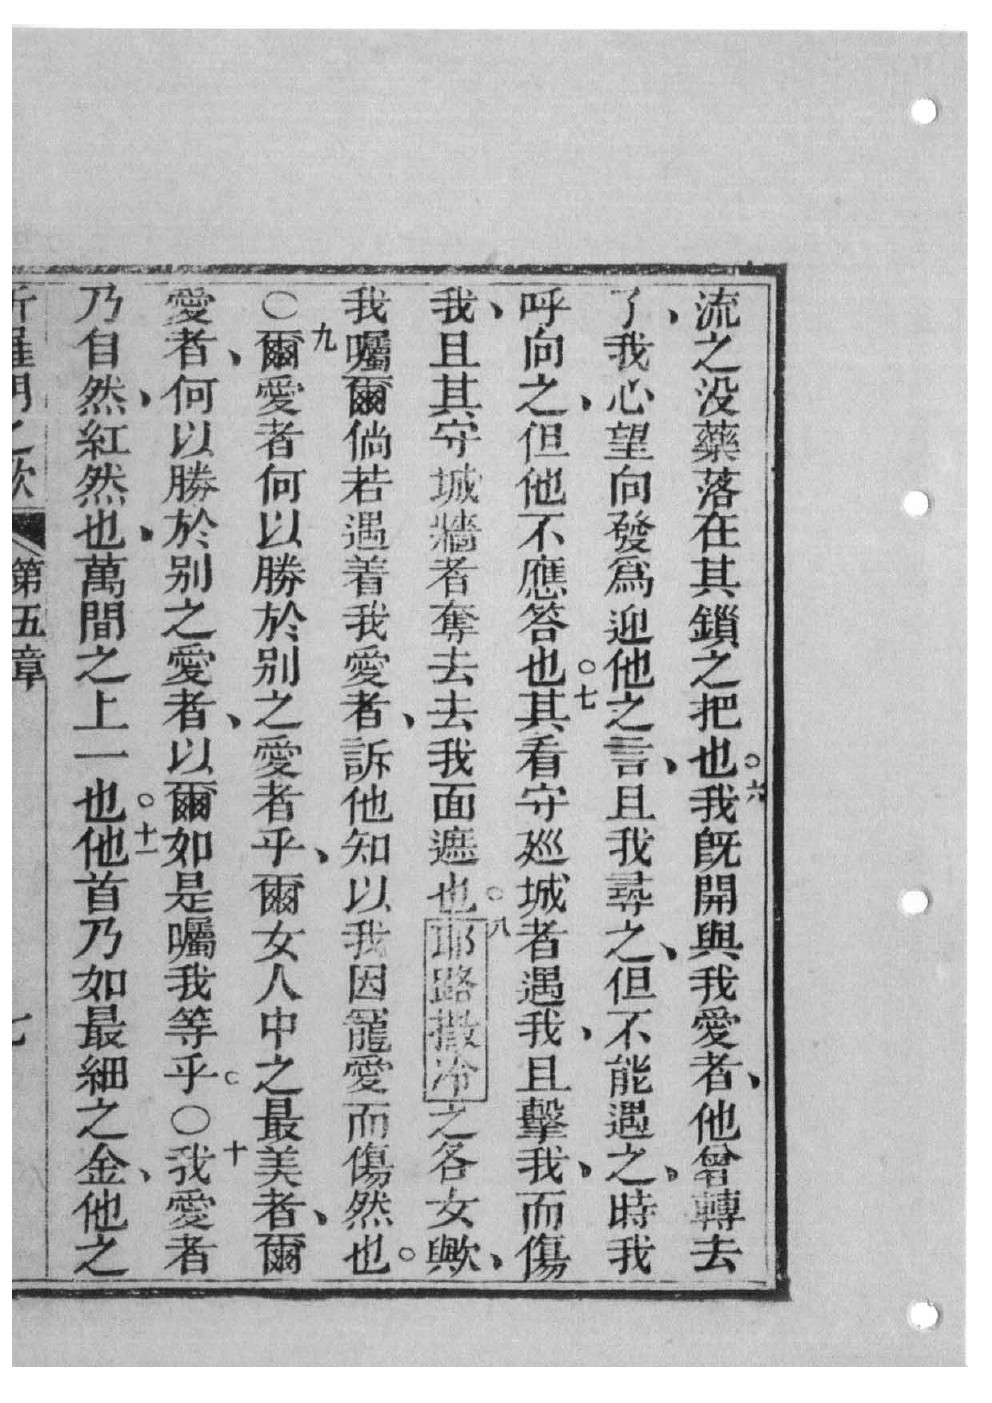 流之没藥落在其鎖之把也。六我旣開與我愛者、他曾轉去
了、我心望向發爲迎他之言、且我尋之、但不能遇之、時我
呼向之、但他不應答也。七其看守廵城者遇我、且擊我、而傷
我、且其守城牆者奪去去我面遮也。八耶路撒冷之各女歟、
我囑爾倘若遇着我愛者、訴他知以我因寵愛而傷然也。
〇九爾愛者何以勝於别之愛者乎、爾女人中之最美者、爾
愛者、何以勝於别之愛者、以爾如是囑我等乎。〇十我愛者
乃自然、紅然也、萬間之上一也。十一他首乃如最細之金、他之
所羅門之歌 第五章 七